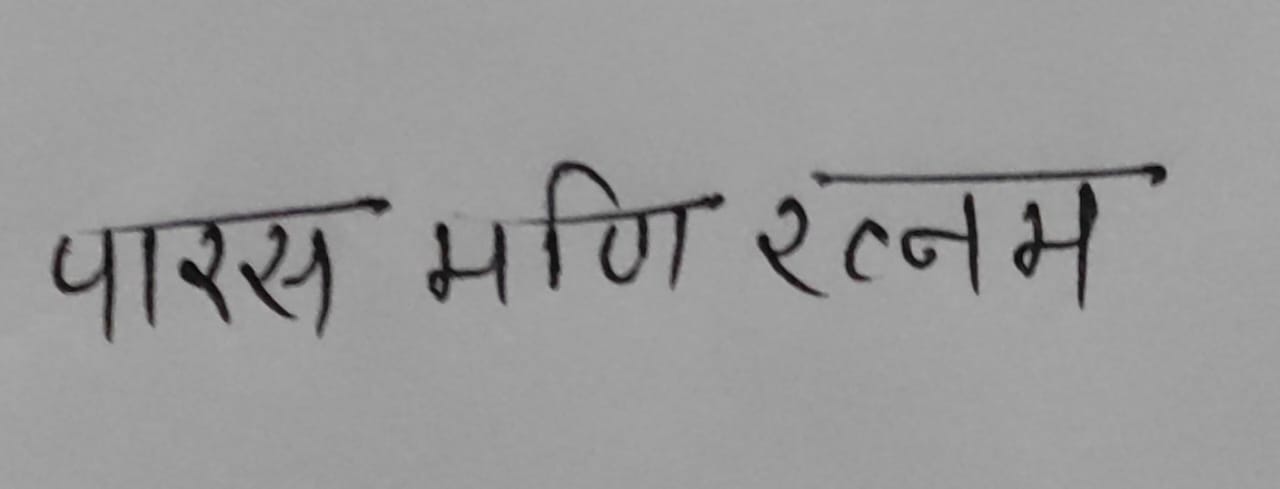 पारस मणि रत्नम